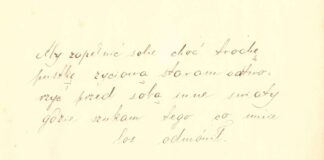 Aby zapełnić sobie choć trochę
pustkę życiową staram odtwo-
rzyć przed sobą inne światy
gdzie szukam tego co mnie
los odmówił.